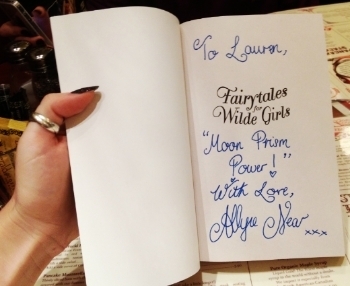 To Lauren,
Fairytales
for
Wilde Girls
"Moon Prism
Power!"
With Love,
Allyse Near
xxx